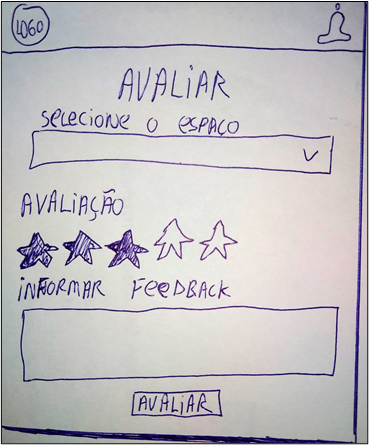 LOGO
AVALIAR
SELECIONE O ESPAÇO
AVALIAÇÃO
INFORMAR FEEDBACK
AVALIAR